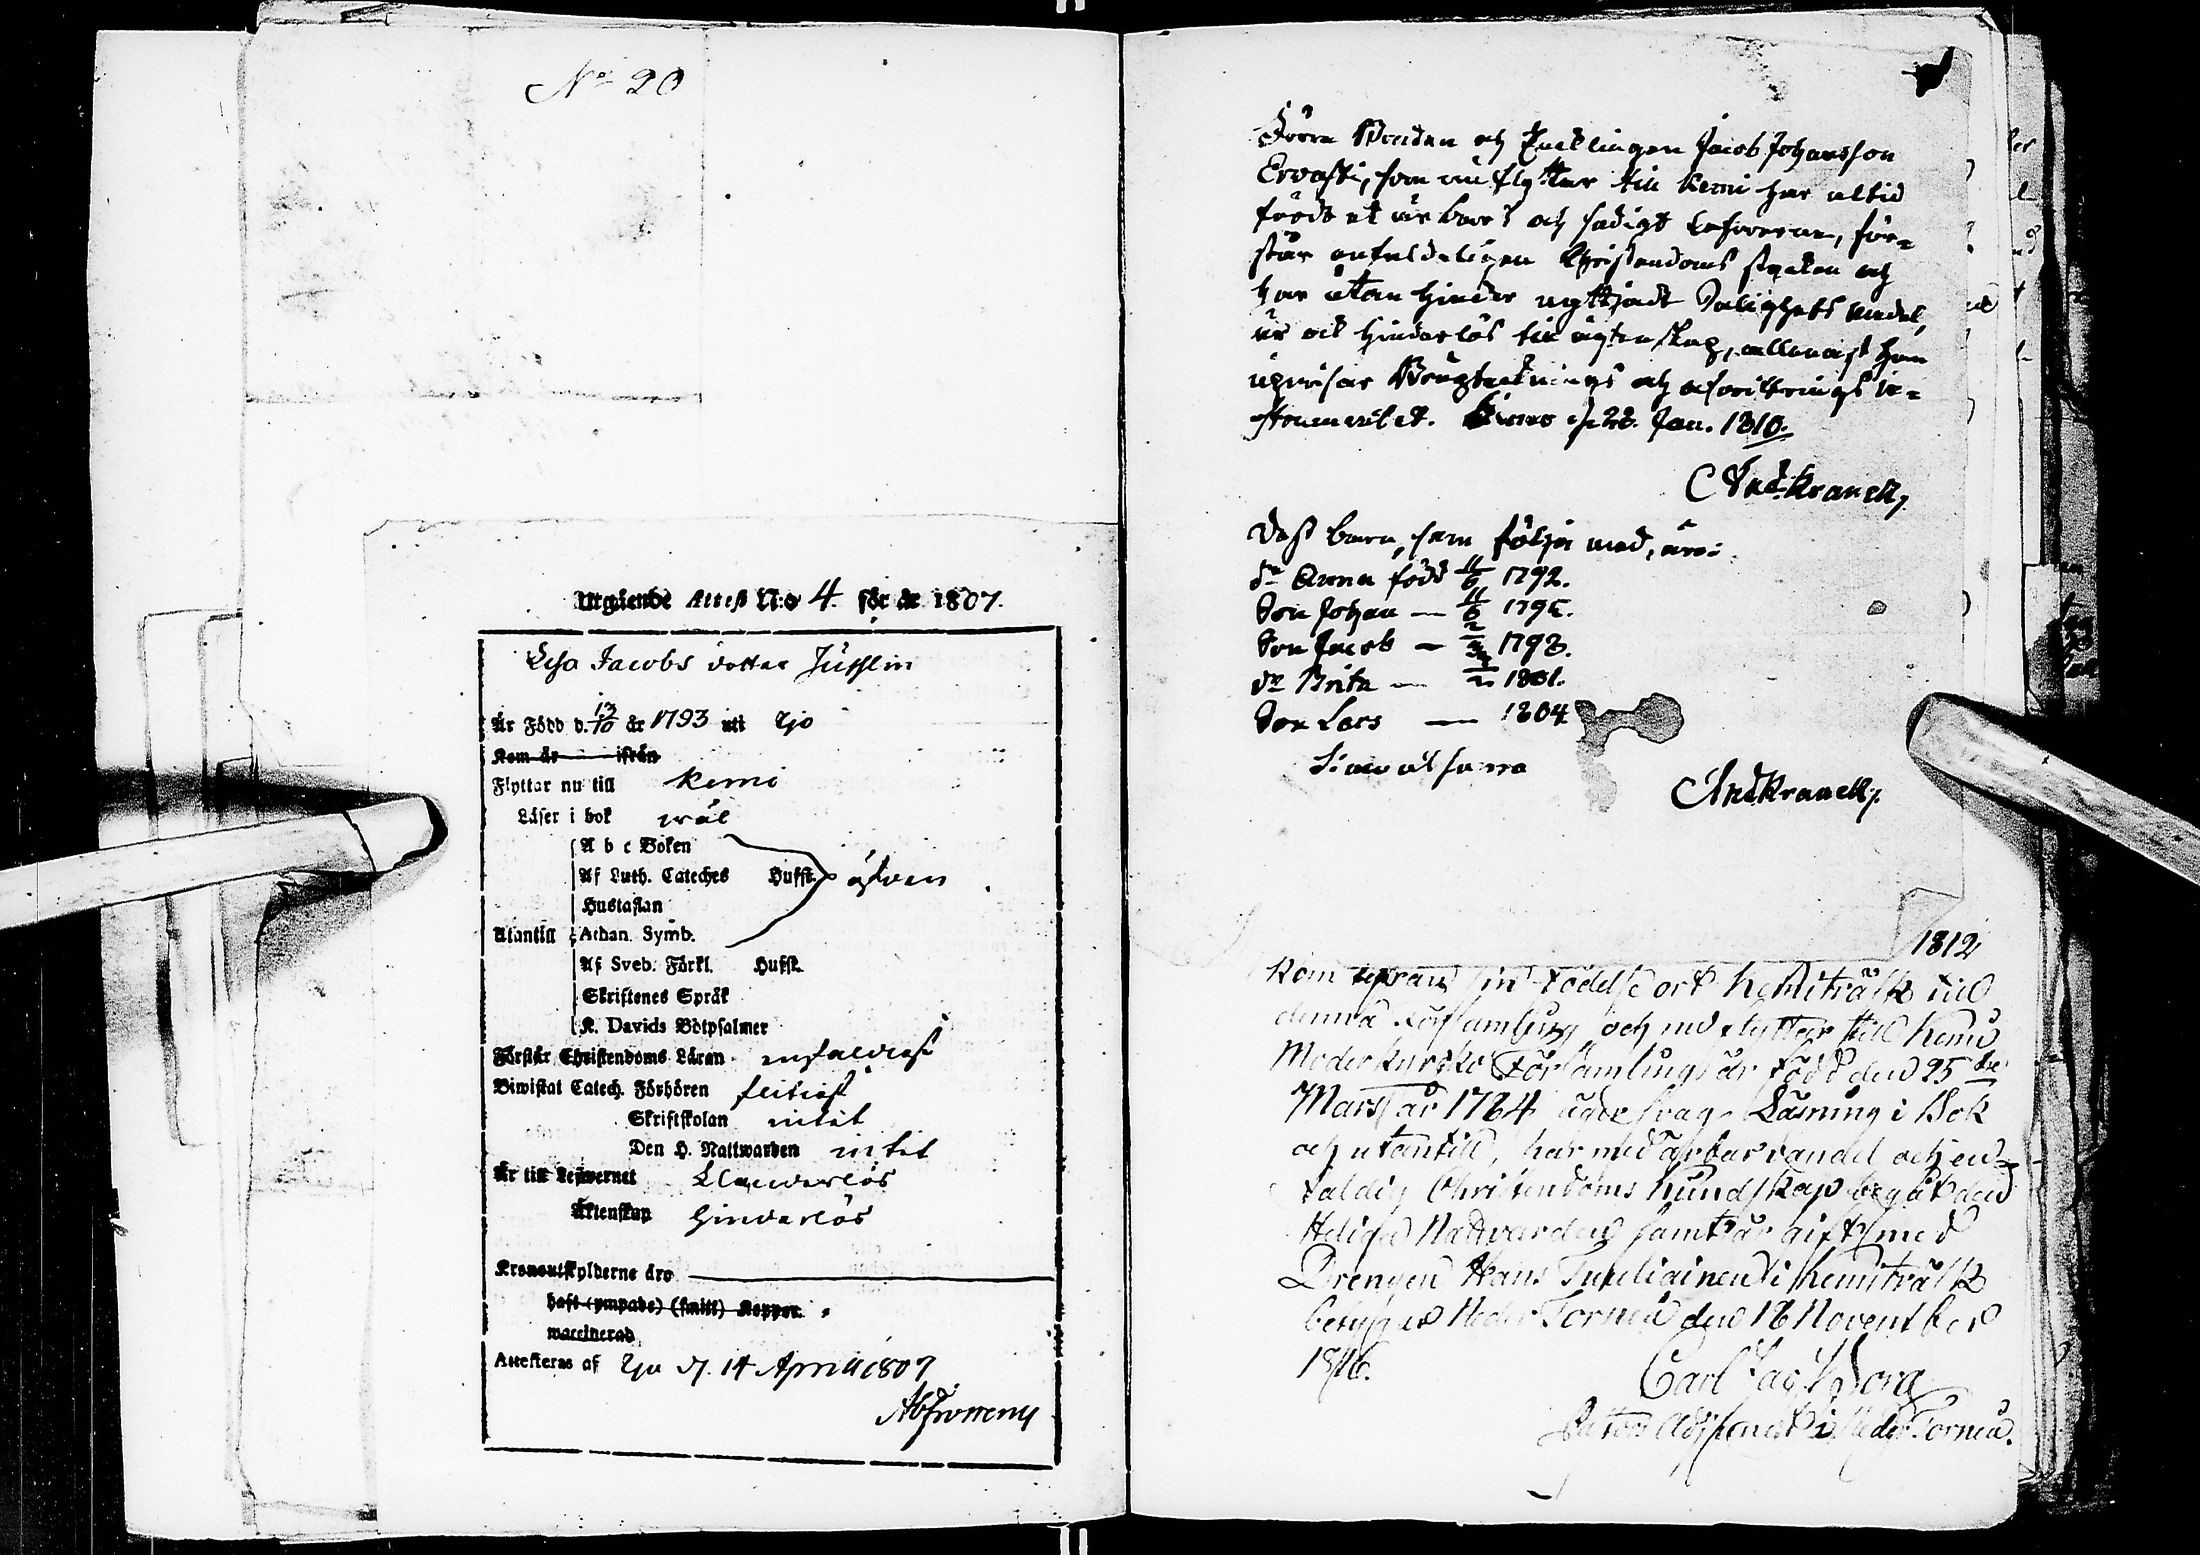 No 20
Utgående Attest N:o 4. för år 1807.
Lisa Jacobs dotter
Är Född d. 13/10 år 1793 uti Ijo
Kom år ifrån
Flyttar nu till Kemi
Läser i bok wäl
A b c Boken
Af Luth. Cateches Hufst. äfven
Hustaflan
Utantill Athan. Symb.
Af Sveb. Förkl. Hufst.
Skriftenes Språk
K. Davids Botpsalmer
Förstår Christendoms Läran enfaldigt
Biwistat Catech. Förhören flitigt
Skriftskolan intet
Den H. Nattwarden intet
Är till Lefwernet Klanderlös
Äktenskap hinderlös
Kronoutskylderne äro
haft (ympade) Koppor
vaccinerad
Attesteras af Ijo d. 14 April 1807
Förra Bonden och Enklingen Jacob Johansson
Ervasti, som nu flyttar till Kemi har altid
fördt et ärbart och sedigt Lefverne, för-
står enfaldeligen Christendoms stycken och
har utan hinder nyttjadt Salighets medel,
är ock hinderlös till ägtenskap, allenast han
upvisar Bougptecknings och afvittrings in-
strumentet. d. 28. Jan. 1810.
And Kranck
Dess barn, som följa med, äro:
Dr Anna född 11/6 1792.
Son Johan — 11/6 1795.
Son Jacob — 1798.
Dr Brita — 1801.
Son Lars — 1804
Simo ut supra
And Kranck
1812
Kom ifrån sin födelse ort Kemiträsk till
denna Församling och nu flytter till Kemi
Moderkyrko Församling, är född den 25te
Mars år 1784 äger svag Läsning i Bok
och utantill, har med ärbar vandel och en-
faldig Christendoms Kundskap begåt den
Heliga Nattvarden samt är gift med
Drengen Hans i Kemiträsk
betygar Neder Torneå den 18 November
1816.
Carl Jac
Pastors Adjunct i Neder Torneå.